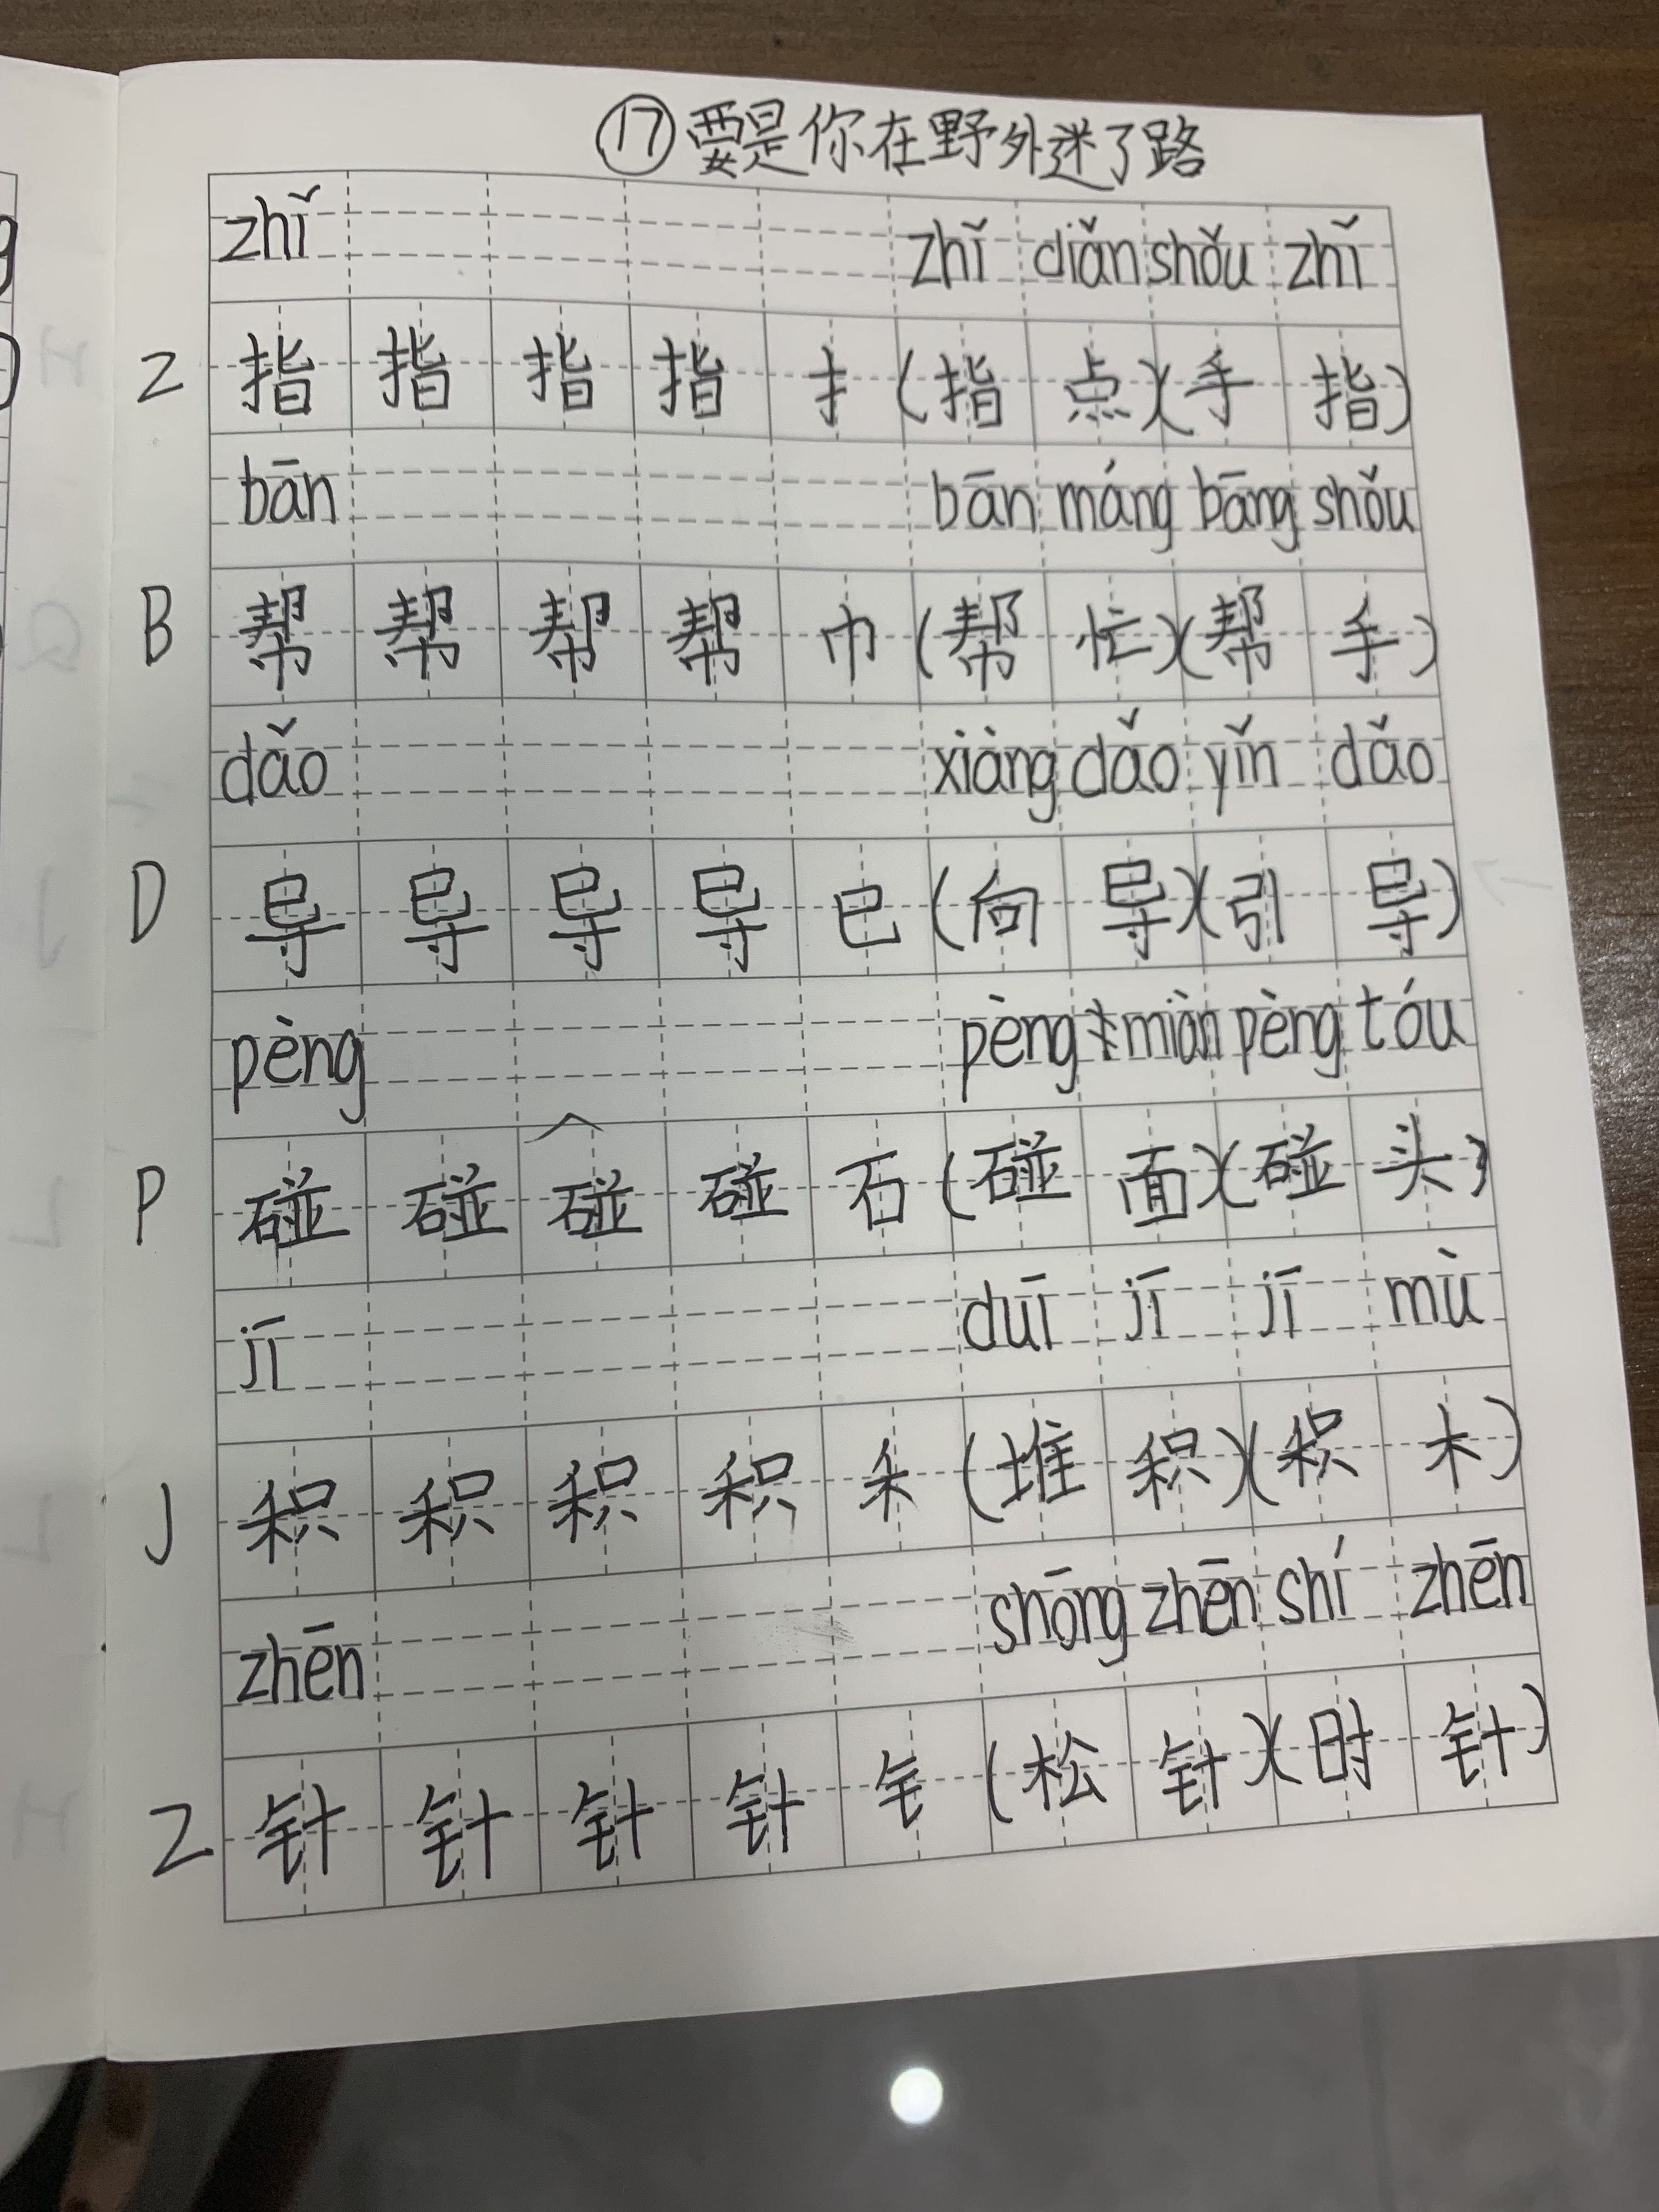 ⑰要是你在野外迷了路
zhǐ zhǐ diǎn shǒu zhǐ
Z 指 指 指 指 扌 (指 点)(手 指)
bān bān máng bāng shǒu
B 帮 帮 帮 帮 巾 (帮 忙)(帮 手)
dǎo xiàng dǎo yǐn dǎo
D 导 导 导 导 巳 (向 导)(引 导)
pèng pèng miàn pèng tóu
P 碰 碰 碰 碰 石 (碰 面)(碰 头)
jī duī jī jī mù
J 积 积 积 积 禾 (堆 积)(积 木)
zhēn shōng zhēn shí zhēn
Z 针 针 针 针 钅 (松 针)(时 针)